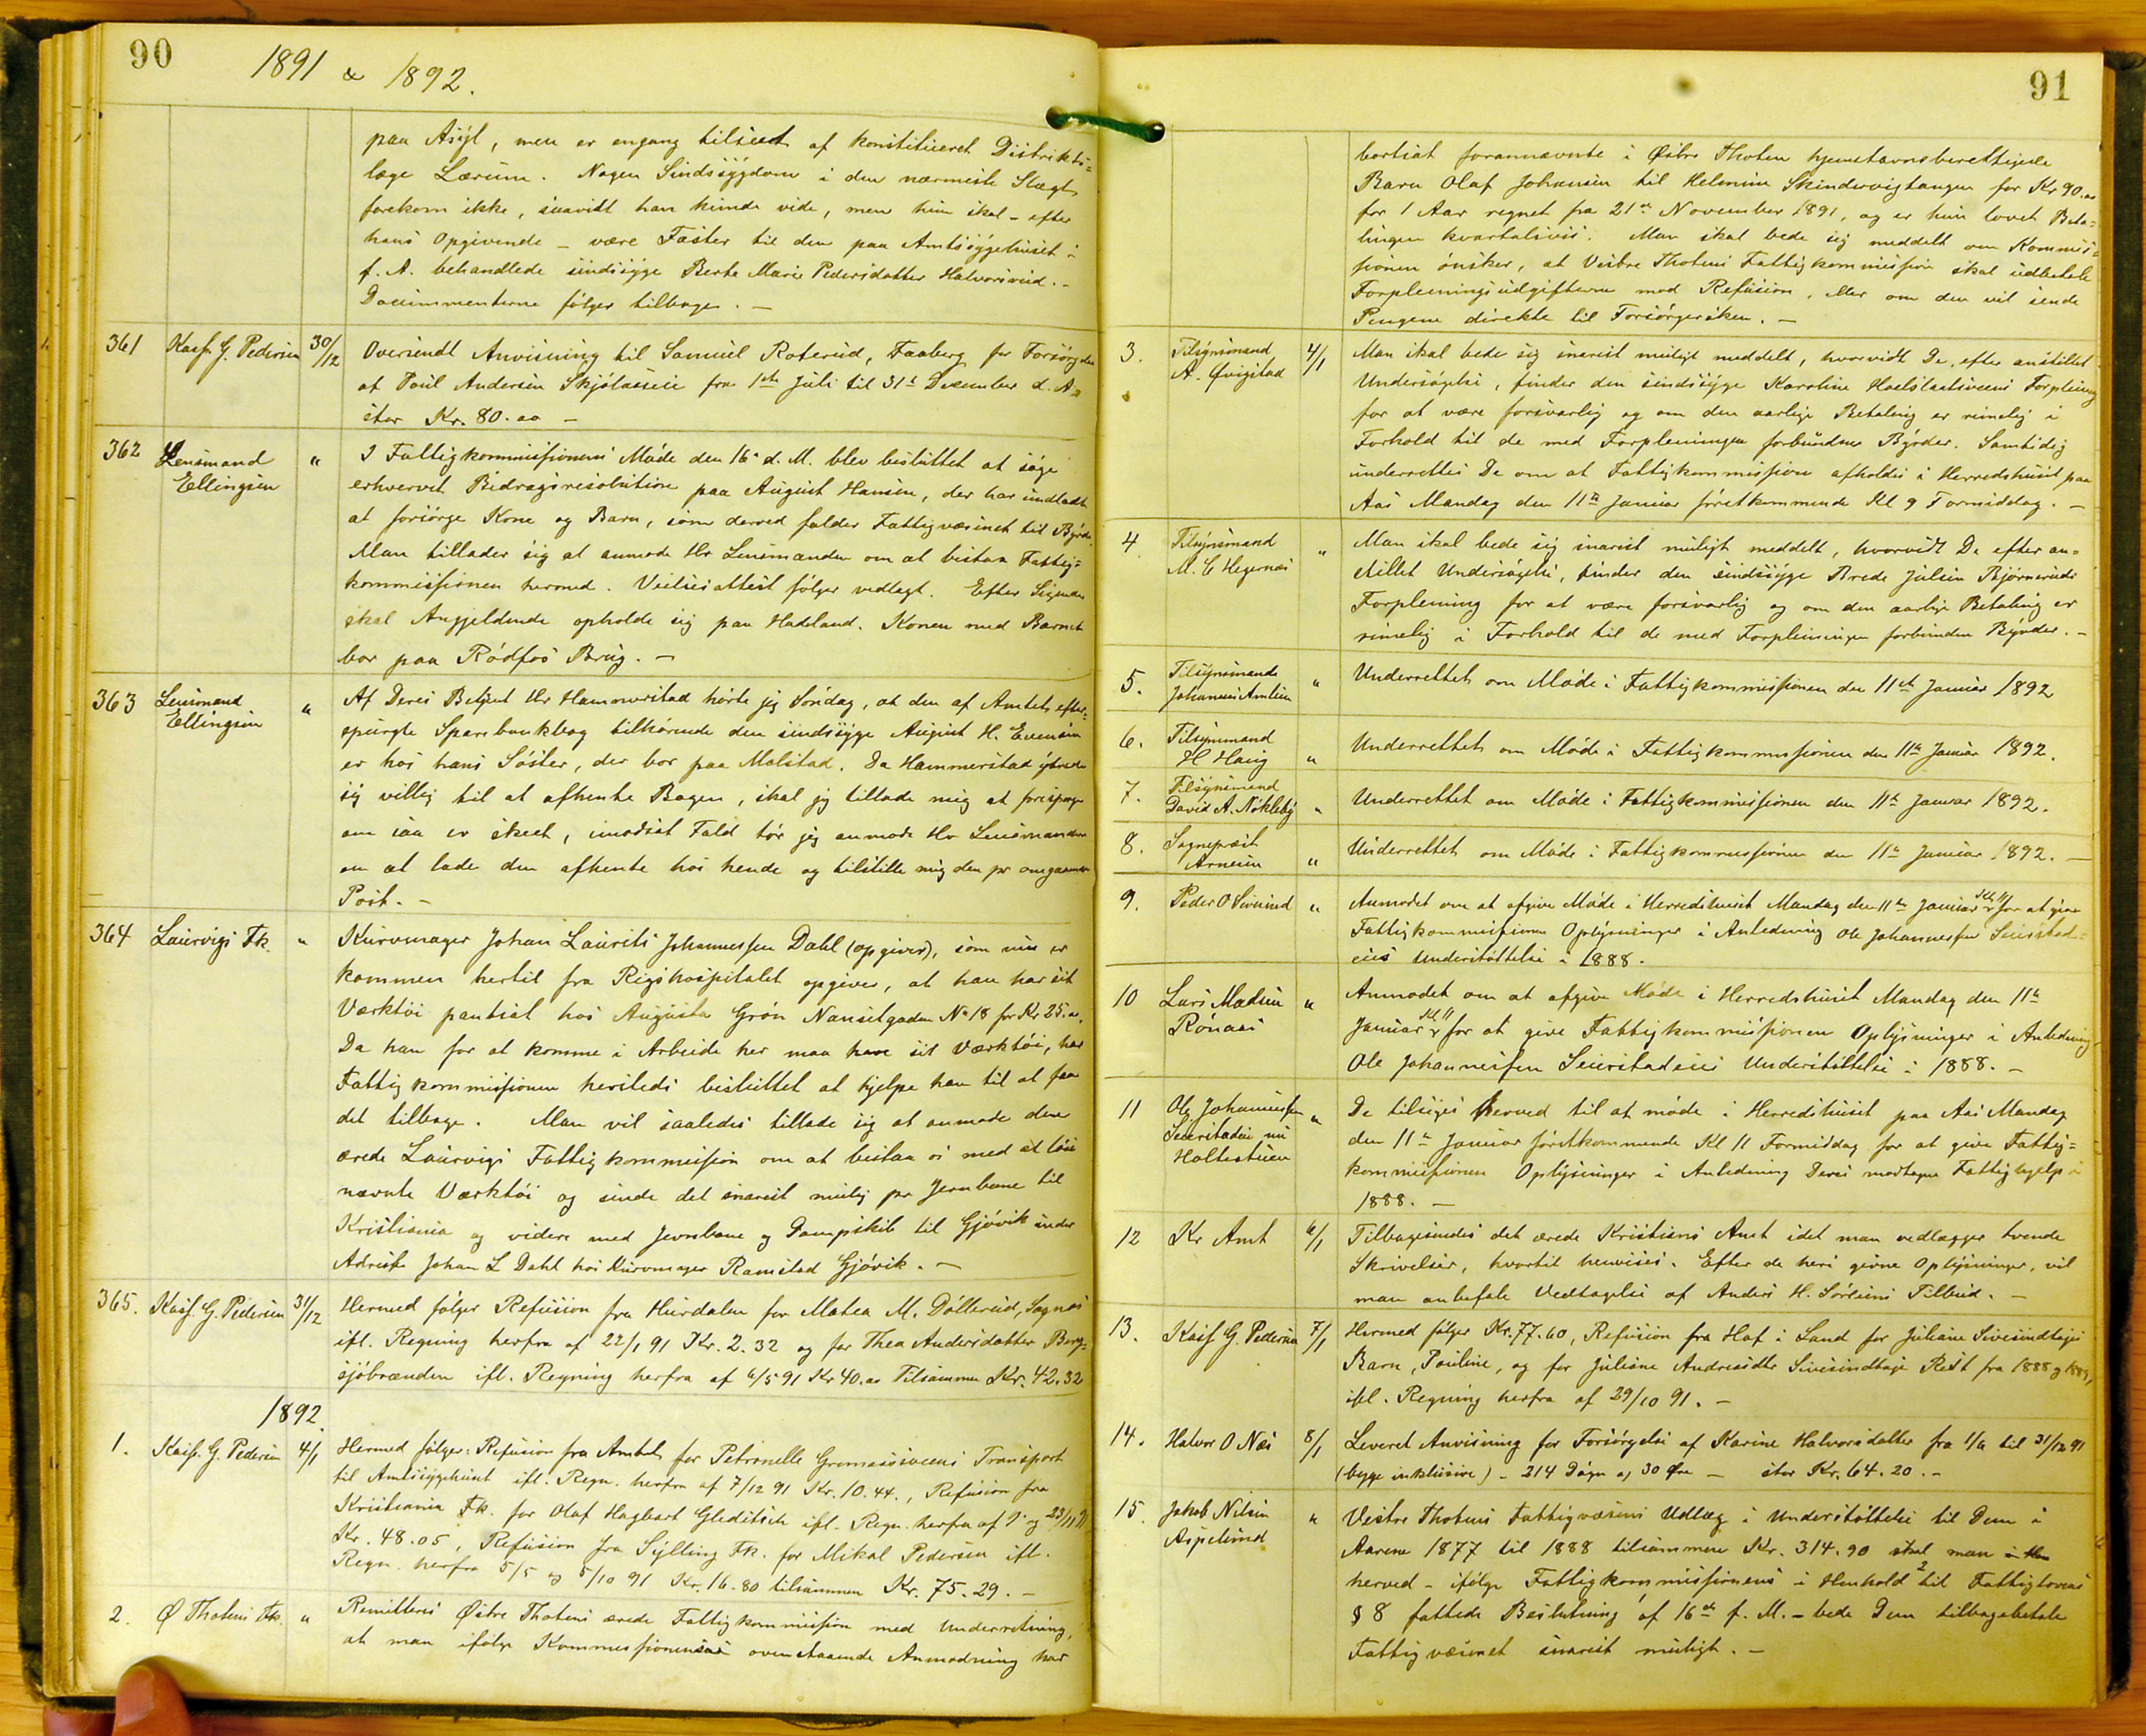 90
1891 & 1892.
paa Asyl, men er engang tilseet af konstitueret Distrikts=
læge Lærum. Nogen Sindssygdom i den nærmeste Slægt
forekom ikke, saavidt han kunde vide, men hun skal - efter
hans Opgivende - være Faster til den paa Amtssygehuset i
f. A. behandlede sindssyge Berte Marie Pedersdatter Halvorsrud. -
Documenterne følger tilbage. -
361 Kasf. G. Pedersen 30/12 Oversendt Anvisning til Samuel Roterud, Faaberg for Forsørgelse
af Poul Andersen Skjølaaseie fra 1ste Juli til 31te December d. A.
stor Kr. 80.00 -
362 Lensmand Ellingsen " I Fattigkommissionens Møde den 16de d. M. blev besluttet at søge
erhvervet Bidragsresolution paa August Hansen, der har undladt
at forsørge Kone og Barn, som derved falder Fattigvæsenet til Byrde.
Man tillader sig at anmode Hr Lensmanden om at bistaa Fattig=
kommissionen hermed. Vielsesattest følger vedlagt. Efter Sigende
skal Angjeldende opholde sig paa Hadeland. Konen med Barnet
bor paa Rødfos Brug. -
363 Lensmand Ellingsen " Af Deres Betjent Hr Hammerstad hørte jeg Søndag, at den af Amtet efter=
spurgte Sparebankbog tilhørende den sindssyge August H. Evensen
er hos hans Søster, der bor paa Molstad. Da Hammerstad ytrede
sig villig til at afhente Bogen, skal jeg tillade mig at forespørge
om saa er skeet, imodsat Fald tør jeg anmode Hr Lensmanden
om at lade den afhente hos hende og tilstille mig den pr omgaaende
Post. -
364 Laurvigs Fk. " Kurvmager Johan Laurits Johannessen Dahl (opgives), som nu er
kommen hertil fra Rigshospitalet opgiver, at han har sit
Værktøi pantsat hos Augusta Grøn Nansetgaden No 18 for Kr 25.00.
Da han for at komme i Arbeide her maa have sit Værktøi, har
Fattigkommissionen hersteds besluttet at hjelpe ham til at faa
det tilbage. Man vil saaledes tillade sig at anmode den
ærede Laurvigs Fattigkommission om at bistaa os med at løse
nævnte Værktøi og sende det snarest mulig pr Jernbane til
Kristiania og videre med Jernbane og Dampskib til Gjøvik under
Adresse Johan L Dahl hos Kurvmager Ramstad Gjøvik. -
365. Kasf. G. Pedersen 31/12 Hermed følger Refusion fra Hurdalen for Matea M. Døllerud, Sognes
ifl. Regning herfra af 22/1 91 Kr. 2.32 og for Thea Andersdatter Berg=
sjøbrænden ifl. Regning herfra af 6/5 91 Kr 40.00 Tilsammen Kr. 42.32
1892.
1. Kasf. G. Pedersen 4/1 Hermed følger: Refusion fra Amtet for Petronelle Transport
til Amtssygehuset ifl. Regn. herfra af 7/12 91 Kr. 10.44., Refusion fra
Kristiania Fk. for Olaf Hagbart Gleditsch ifl. Regn. herfra af og 23/11 91
Kr. 48.05, Refusion fra Sylling Fk. for Mikal Pedersen ifl.
Regn. herfra 5/5 og 5/10 91 Kr. 16.80 tilsammen Kr. 75.29. -
2. Ø Thotens Fk. " Remitteres Østre Thotens ærede Fattigkommission med Underretning,
at man ifølge Kommissionens ovenstaaende Anmodning har
91
bortsat forannævnte i Østre Thoten hjemstavnsberettigede
Barn Olaf Johansen til Helmine Skindervigtangen for Kr 90.00
for 1 Aar regnet fra 21de November 1891, og er hun lovet Beta=
lingen kvartalsvis. Man skal bede sig meddelt om Kommis=
sionen ønsker, at Vestre Thotens Fattigkommission skal udbetale
Forpleiningsudgifterne mod Refusion, eller om den vil sende
Pengene direkte til Forsørgersken. -
3. Tilsynsmand A. Qvigstad 4/1 Man skal bede sig snarest muligt meddelt, hvorvidt De, efter anstillet
Undersøgelse, finder den sindssyge Karoline Forpleining
for at være forsvarlig og om den aarlige Betaling er rimelig i
Forhold til de med Forpleiningen forbundne Byrder. Samtidig
underrettes De om at Fattigkommission afholdes i Herredshuset paa
Aas Mandag den 11te Januar førstkommende Kl 9 Formiddag. -
4 Tilsynsmand M. C Hegernæs " Man skal bede sig snarest muligt meddelt, hvorvidt De efter an=
stillet Undersøgelse, finder den sindssyge Brede Julsen Bjørnerudr
Forpleining for at være forsvarlig og om den aarlige Betaling er
rimelig i Forhold til de med Forpleiningen forbundne Byrder. -
5. Tilsynsmand Johannes Amlien " Underrettet om Møde i Fattigkommissionen den 11te Januar 1892
6. Tilsynsmand H Haug " Underrettet om Møde i Fattigkommissionen den 11te Januar 1892.
7. Tilsynsmand David A. Nøkleby " Underrettet om Møde i Fattigkommissionen den 11te Januar 1892.
8. Sogneprest Arnesen " Underrettet om Møde i Fattigkommissionen den 11te Januar 1892. -
9. Peder O Sivesind " Anmodet om at afgive Møde i Herredshuset Mandag den 11te Januar Kl 11 for at give
Fattigkommissionen Oplysninger i Anledning Ole Johannessen Seierstad=
eies Understøttelse i 1888.
10 Lars Madsen Rønaas " Anmodet om at afgive Møde i Herredshuset Mandag den 11te
Januar Kl 11 for at give Fattigkommissionen Oplysninger i Anledning
Ole Johannessen Seierstadeies Understøttelse i 1888. -
11 Ole Johannessen Seierstadeie nu Holtestuen " De tilsiges herved til at møde i Herredshuset paa Aas Mandag
den 11te Januar førstkommende Kl 11 Formiddag for at give Fattig=
kommissionen Oplysninger i Anledning Deres modtagne Fattighjelp i
1888. -
12 Kr Amt 6/1 Tilbagesendes det ærede Kristians Amt idet man vedlægger tvende
Skrivelser, hvortil henvises. Efter de heri givne Oplysninger, vil
man anbefale Vedtagelse af Anders H. Sørliens Tilbud. -
13. Kasf G. Pedersen 7/1 Hermed følger Kr. 77.60, Refusion fra Hof i Land for Juliane Sivesindhagei
Barn, Pauline, og for Juliane Andresdtr Sivesindhage Rest fra 1888 og 1889,
ifl. Regning herfra af 29/10 91. -
14. Halvor O Næs 8/1 Leveret Anvisning for Forsørgelse af Karine Halvorsdatter fra 1/6 til 31/12 91
(begge inklusive) - 214 Døgn a 30 Øre - stor Kr. 64.20. -
15. Jakob Nilsen Aspelund " Vestre Thotens Fattigvæsens Udlæg i Understøttelse til Dem i
Aarene 1877 til 1888 tilsammen Kr. 314.90 skal man
herved - ifølge Fattigkommissionens i Henhold til Fattiglovens
§ 8 fattede Beslutning af 16de f. M. - bede Dem tilbagebetale
Fattigvæsenet snarest muligt. -